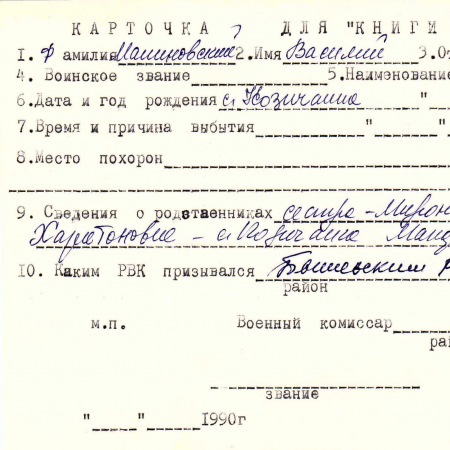 КАРТОЧКА ДЛЯ "КНИГИ
1. Фамилия Малиновский 2. Имя Василий 3. От
4. Воинское звание 5. Наименование
6. Дата и год рождения с. Козичанка "
7. Время и причина выбытия " "
8. Место похорон
9. Сведения о родственниках сестра - Мирон
Харитоновна - с. Козичанка
10. Каким РВК призывался
район
м.п. Военный комиссар
ра
звание
" " 1990г